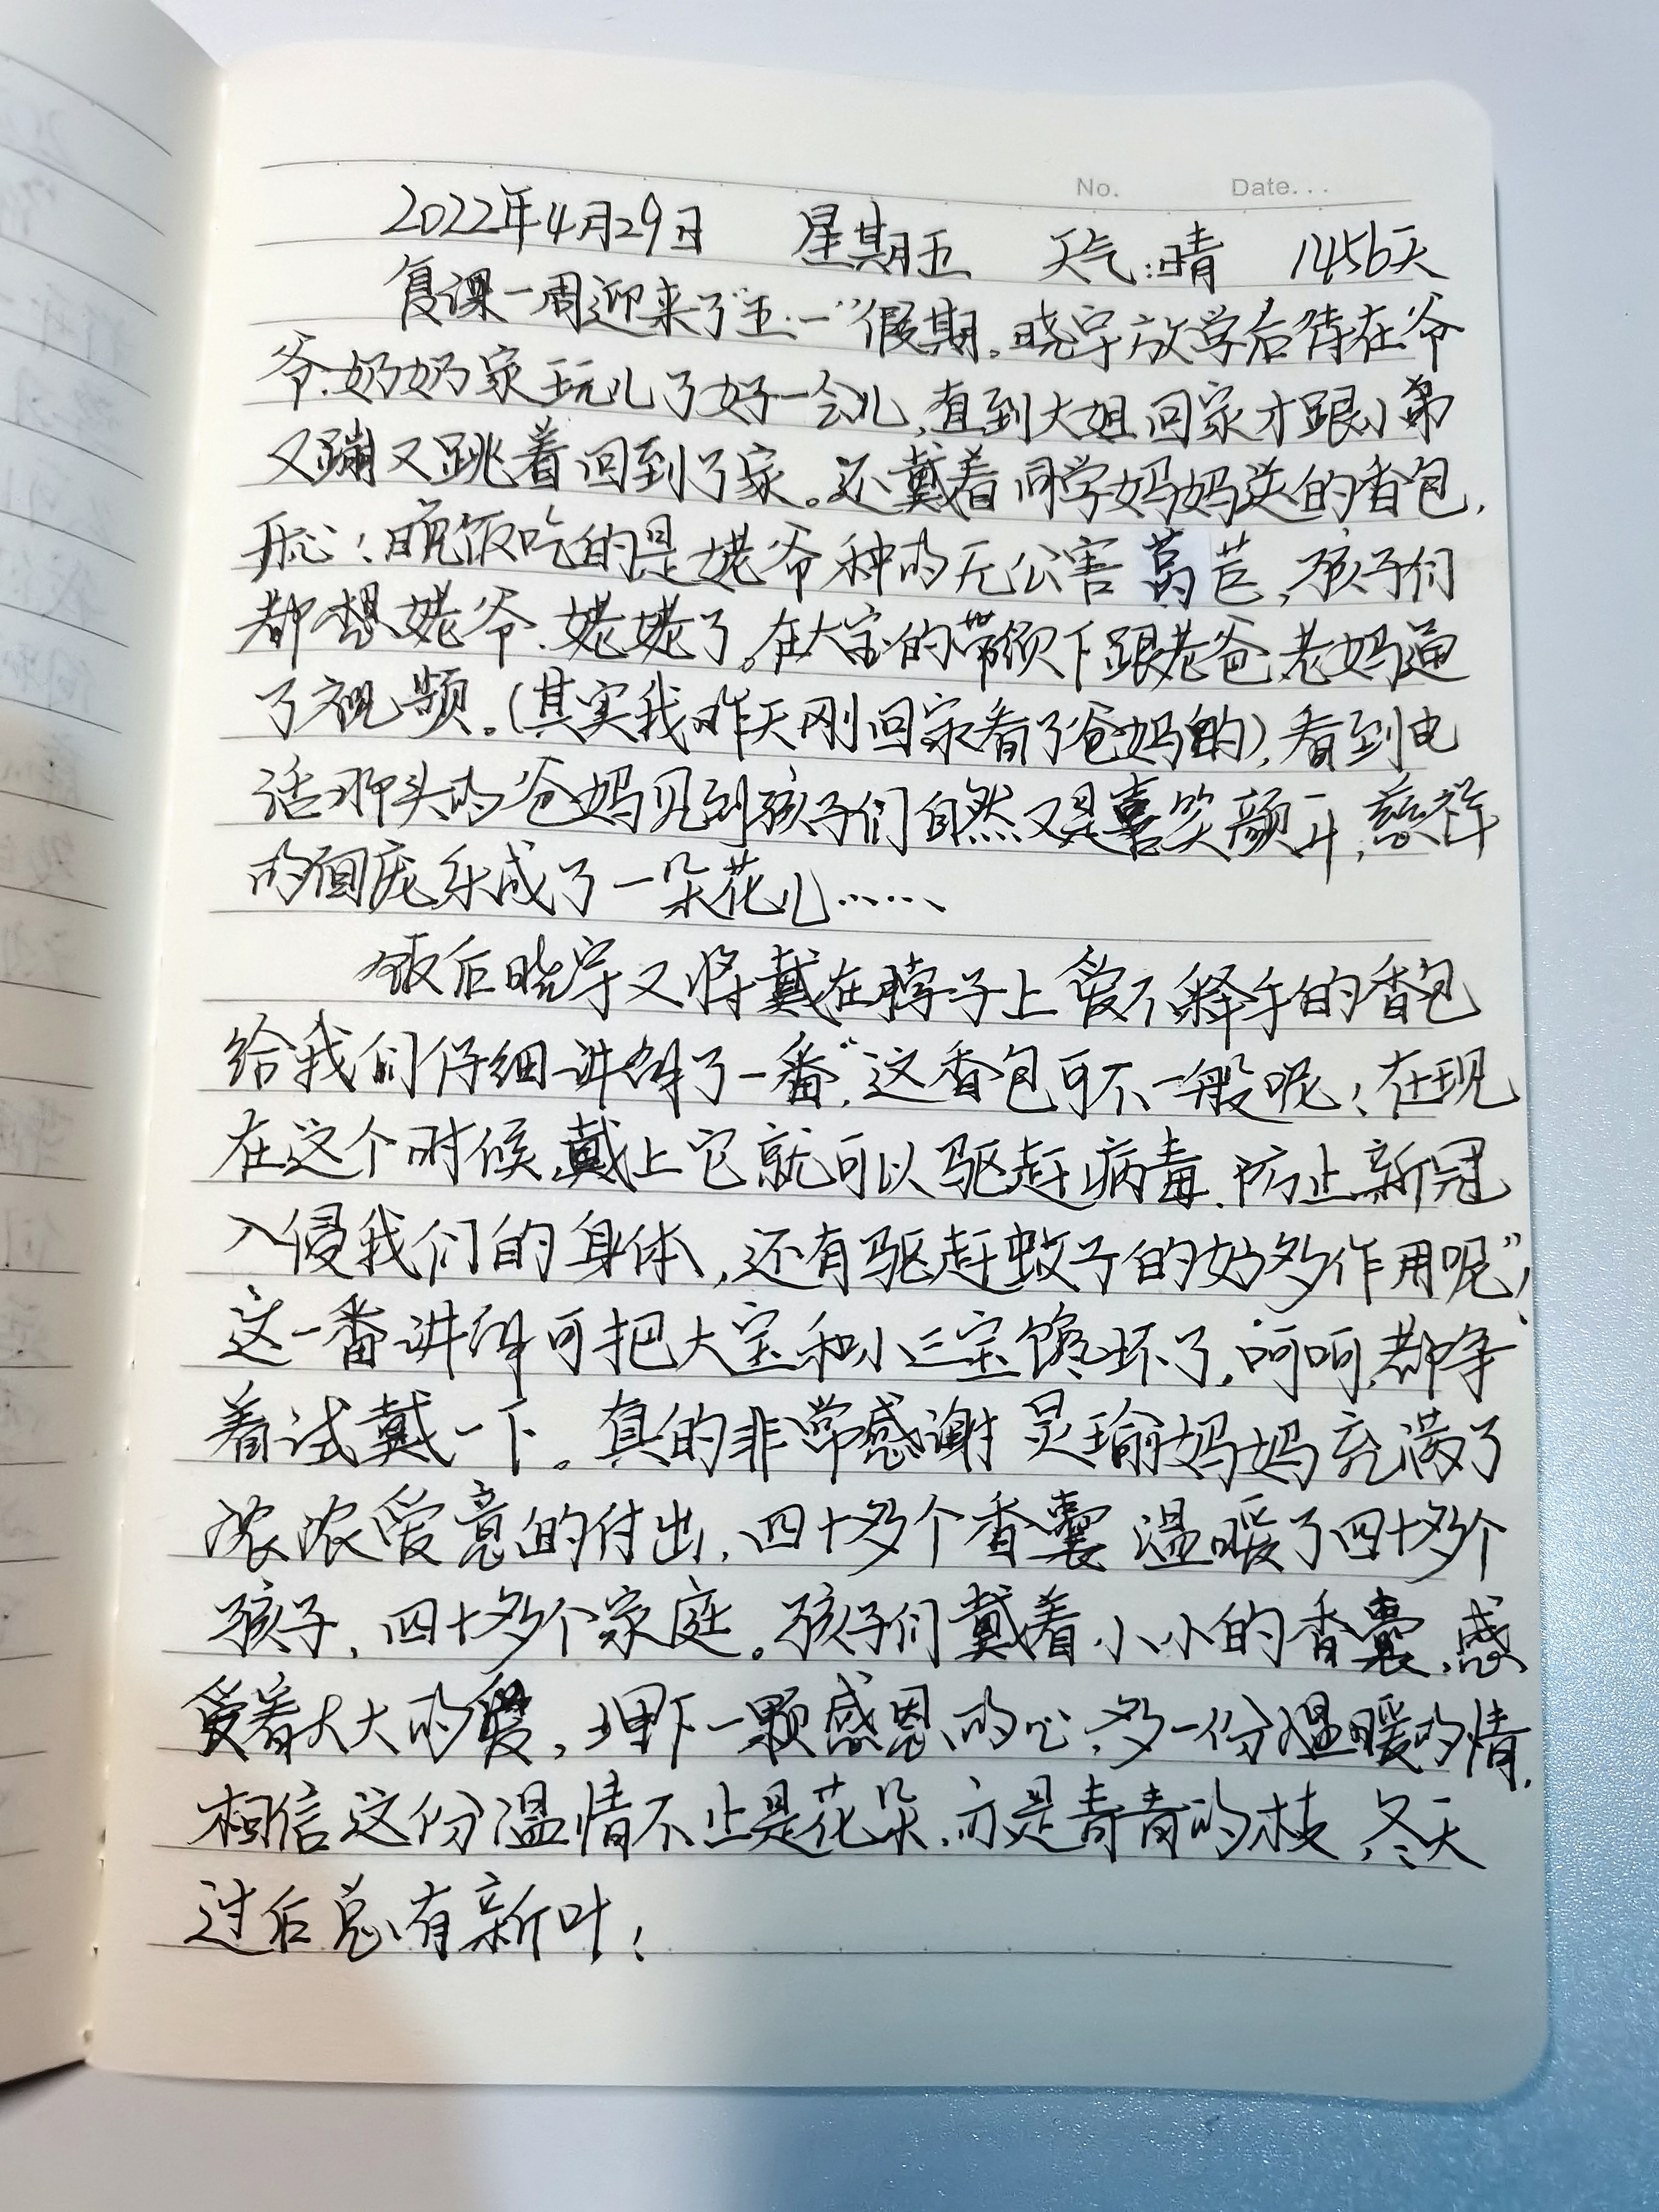 No. Date...
2022年4月29日 星期五 天气:晴 1456天
复课一周迎来了"五·一"假期。晓宇放学后待在爷
爷、奶奶家玩儿了好一会儿,直到大姐回家才跟小弟
又蹦又跳着回到了家。还戴着同学妈妈送的香包,
开心!晚饭吃的是姥爷种的无公害莴苣,孩子们
都想姥爷、姥姥了。在大宝的带领下跟老爸、老妈通
了视频。(其实我昨天刚回家看了爸妈的),看到电
话那头的爸妈见到孩子们自然又是喜笑颜开,慈祥
的面庞乐成了一朵花儿……
饭后晓宇又将戴在脖子上爱不释手的香包
给我们仔细讲解了一番,"这香包可不一般呢!在现
在这个时候,戴上它就可以驱赶病毒、防止新冠
入侵我们的身体,还有驱赶蚊子的好多作用呢"!
这一番讲解可把大宝和小三宝馋坏了,呵呵,都争
着试戴一下。真的非常感谢 昊瑜妈妈充满了
浓浓爱意的付出,四十多个香囊 温暖了四十多个
孩子,四十多个家庭。孩子们戴着小小的香囊,感
受着大大的爱,埋下一颗感恩的心,多一份温暖的情,
相信这份温情不止是花朵,亦是青青的枝,冬天
过后总有新叶!